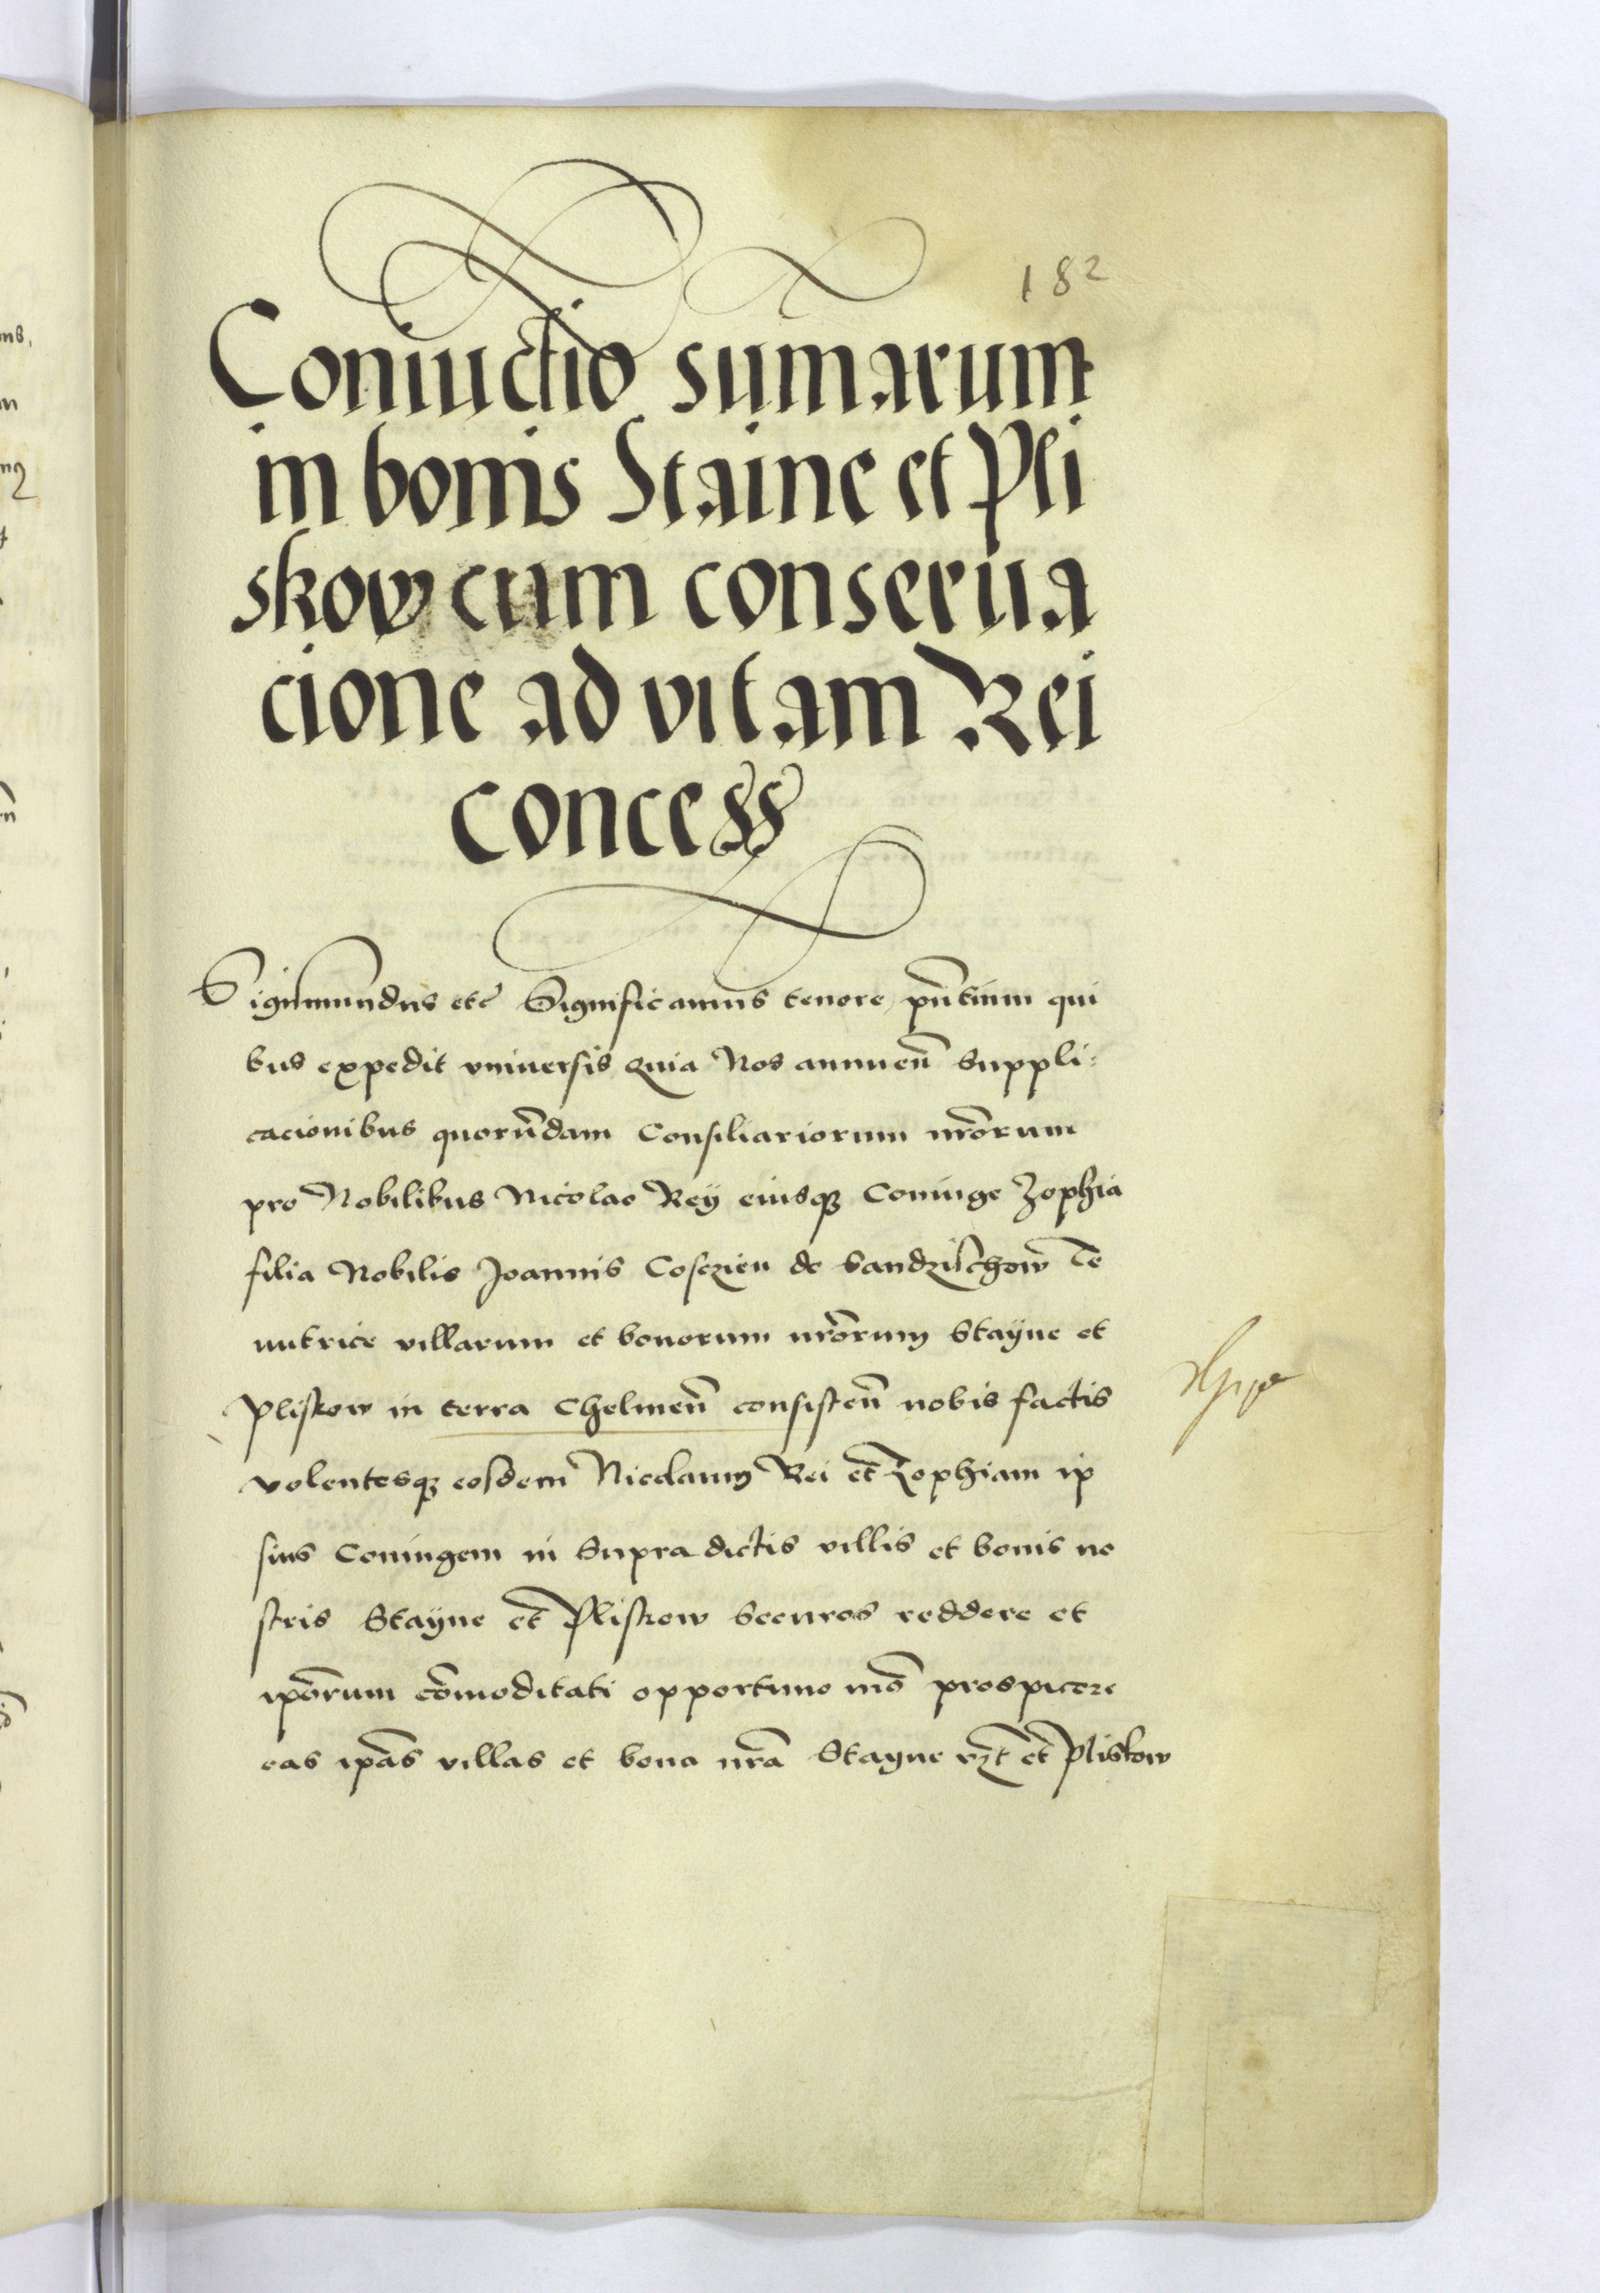 182
Coniuctio sumarum
in bonis Staine et Pli
skow cum conserua
cione ad vitam Rei
concess
Sigismundus etc Significamus tenore pn̄tium qui
bus expedit vniuersis quia Nos annuen̄ Suppli:
cacionibus quorūdam Consiliariorum nr̄orum
pro Nobilibus Nicolao Reÿ eiusqꝫ Coniuge Zophia
filia Nobilis Joannis Coszien de Sandzischow Te
nutrice villarum et bonorum nr̄orum Staÿne et
Pliskow in terra Chelmen̄ consisten̄ nobis factis
volentesqꝫ eosdem Nicolaum Rei et Zophiam ip
sius Coniugem in Supradictis villis et bonis no
stris Staÿne et Pliskow Securos reddere et
ip̄orum cōmoditati opportuno mō prospicere
eas ip̄as villas et bona nr̄a Stayne et Pliskow